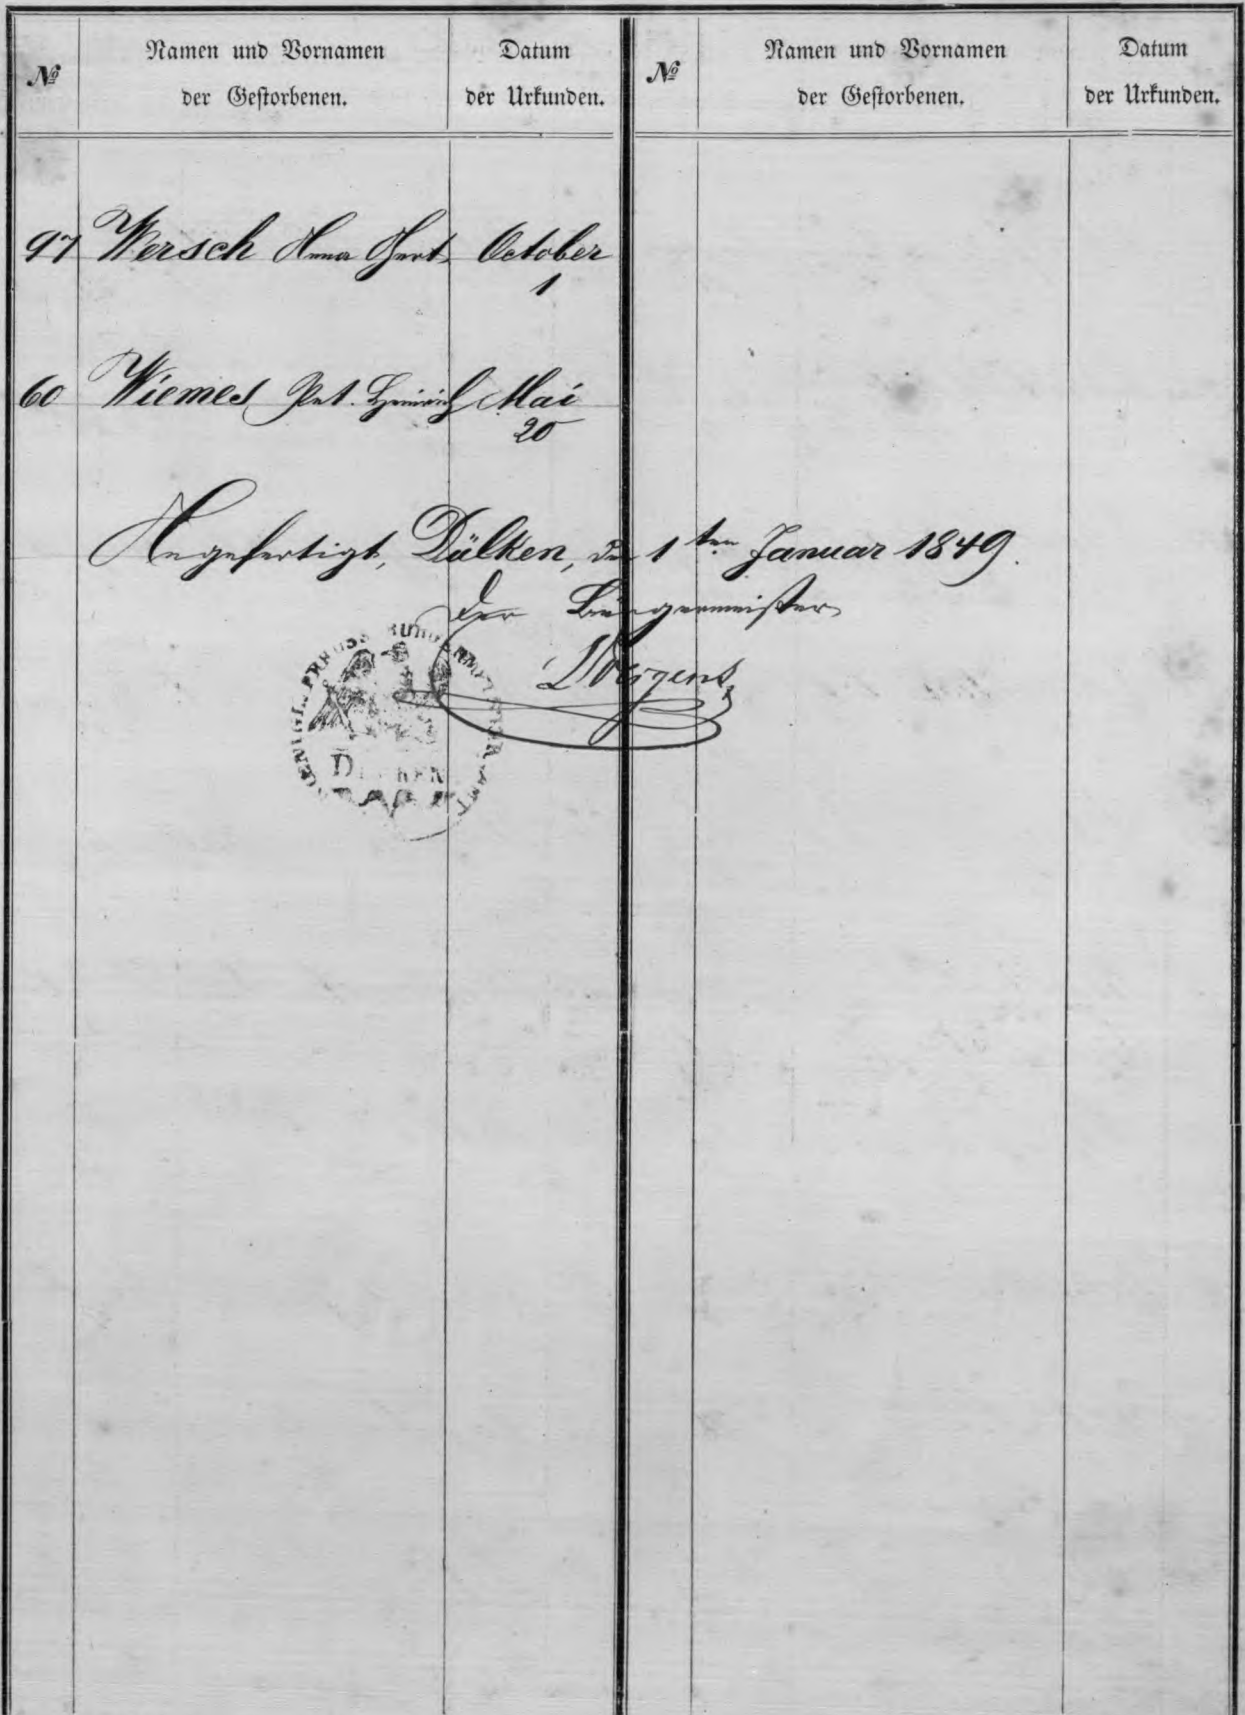 № Namen und Vornamen der Gestorbenen. Datum der Urkunden.
№ Namen und Vornamen der Gestorbenen. Datum der Urkunden.
97 Wersch Anna Gert. October
1
60 Wiemes Pet. Heinrich Mai
20
Angefertigt, Dülken, den 1ten Januar 1849.
Der Bürgermeister
KOENIGL. PREUSS. BÜRGERMEISTER AMT
DÜLKEN